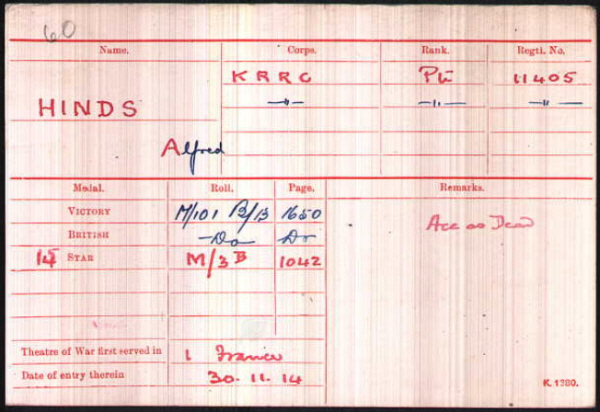 60
Name. Corps. Rank. Regtl. No.
KRRC Pte 11405
HINDS —"— —"— —"—
Alfred
Medal. Roll. Page. Remarks.
VICTORY M/101 B/13 1650 Acc as Dead
BRITISH —Do— Do
15 STAR M/3B 1042
Theatre of War first served in 1 France
Date of entry therein 30.11.14
K. 1380.